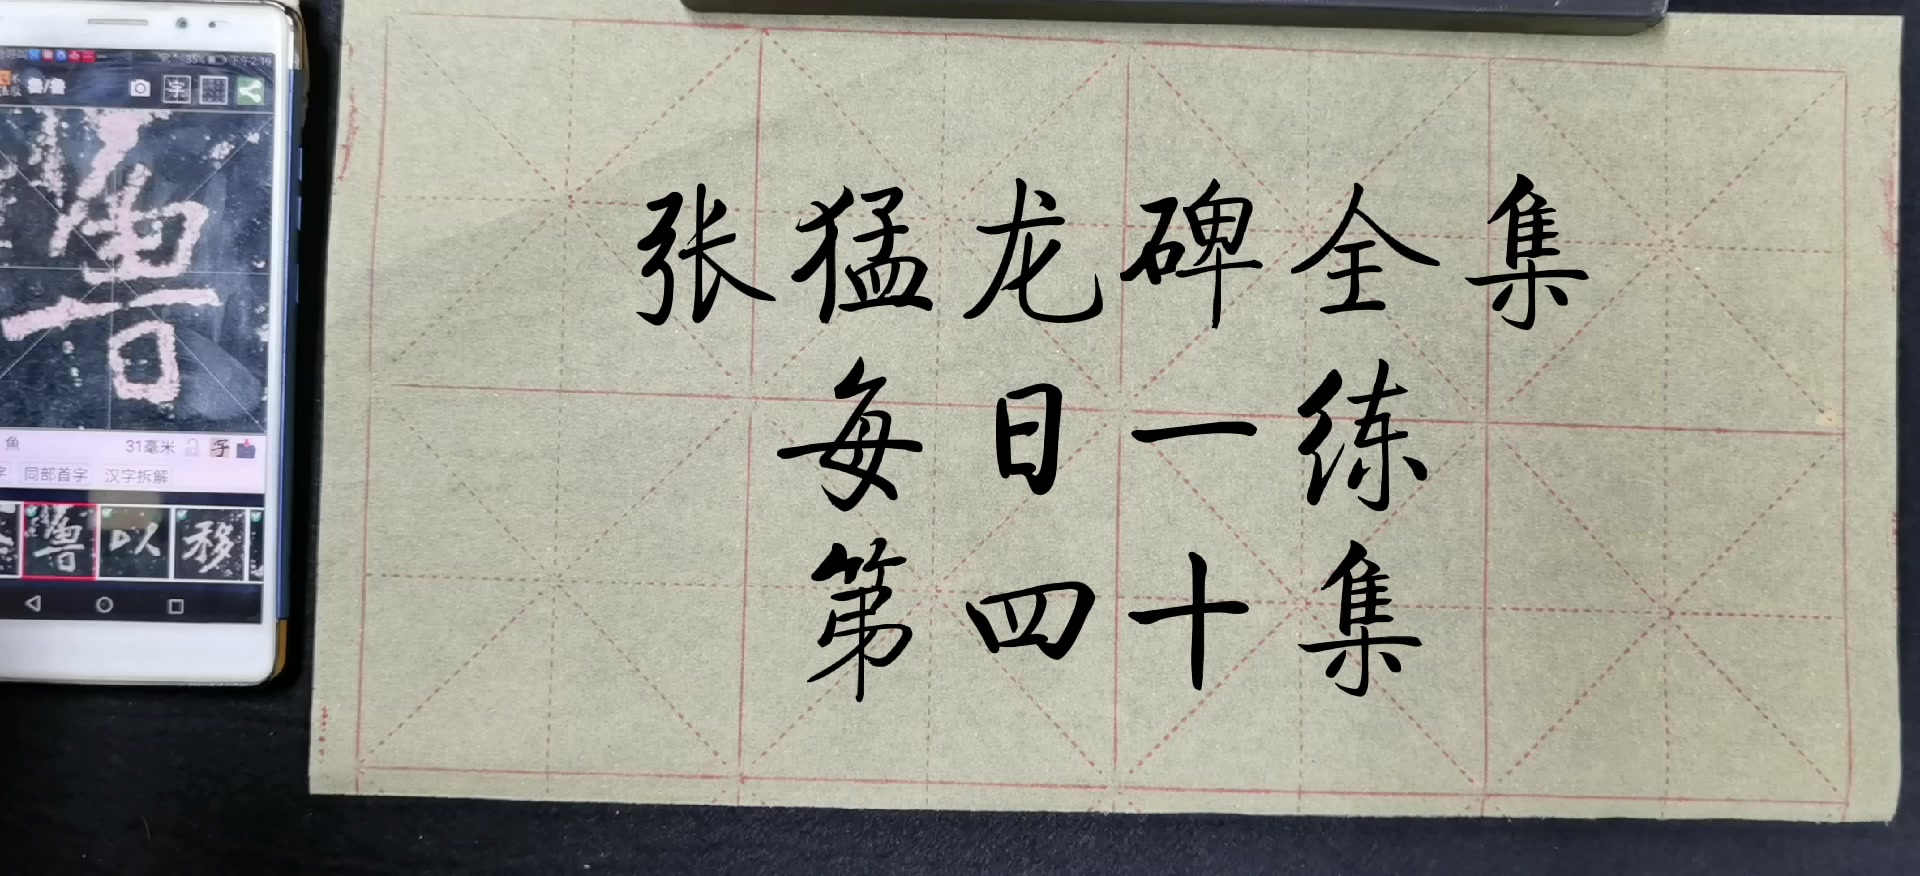 35% 下午2:19
鲁/魯
字
魯
魚
31毫米
字
字 同部首字 汉字拆解
魯 以 移
张猛龙碑全集
每日一练
第四十集